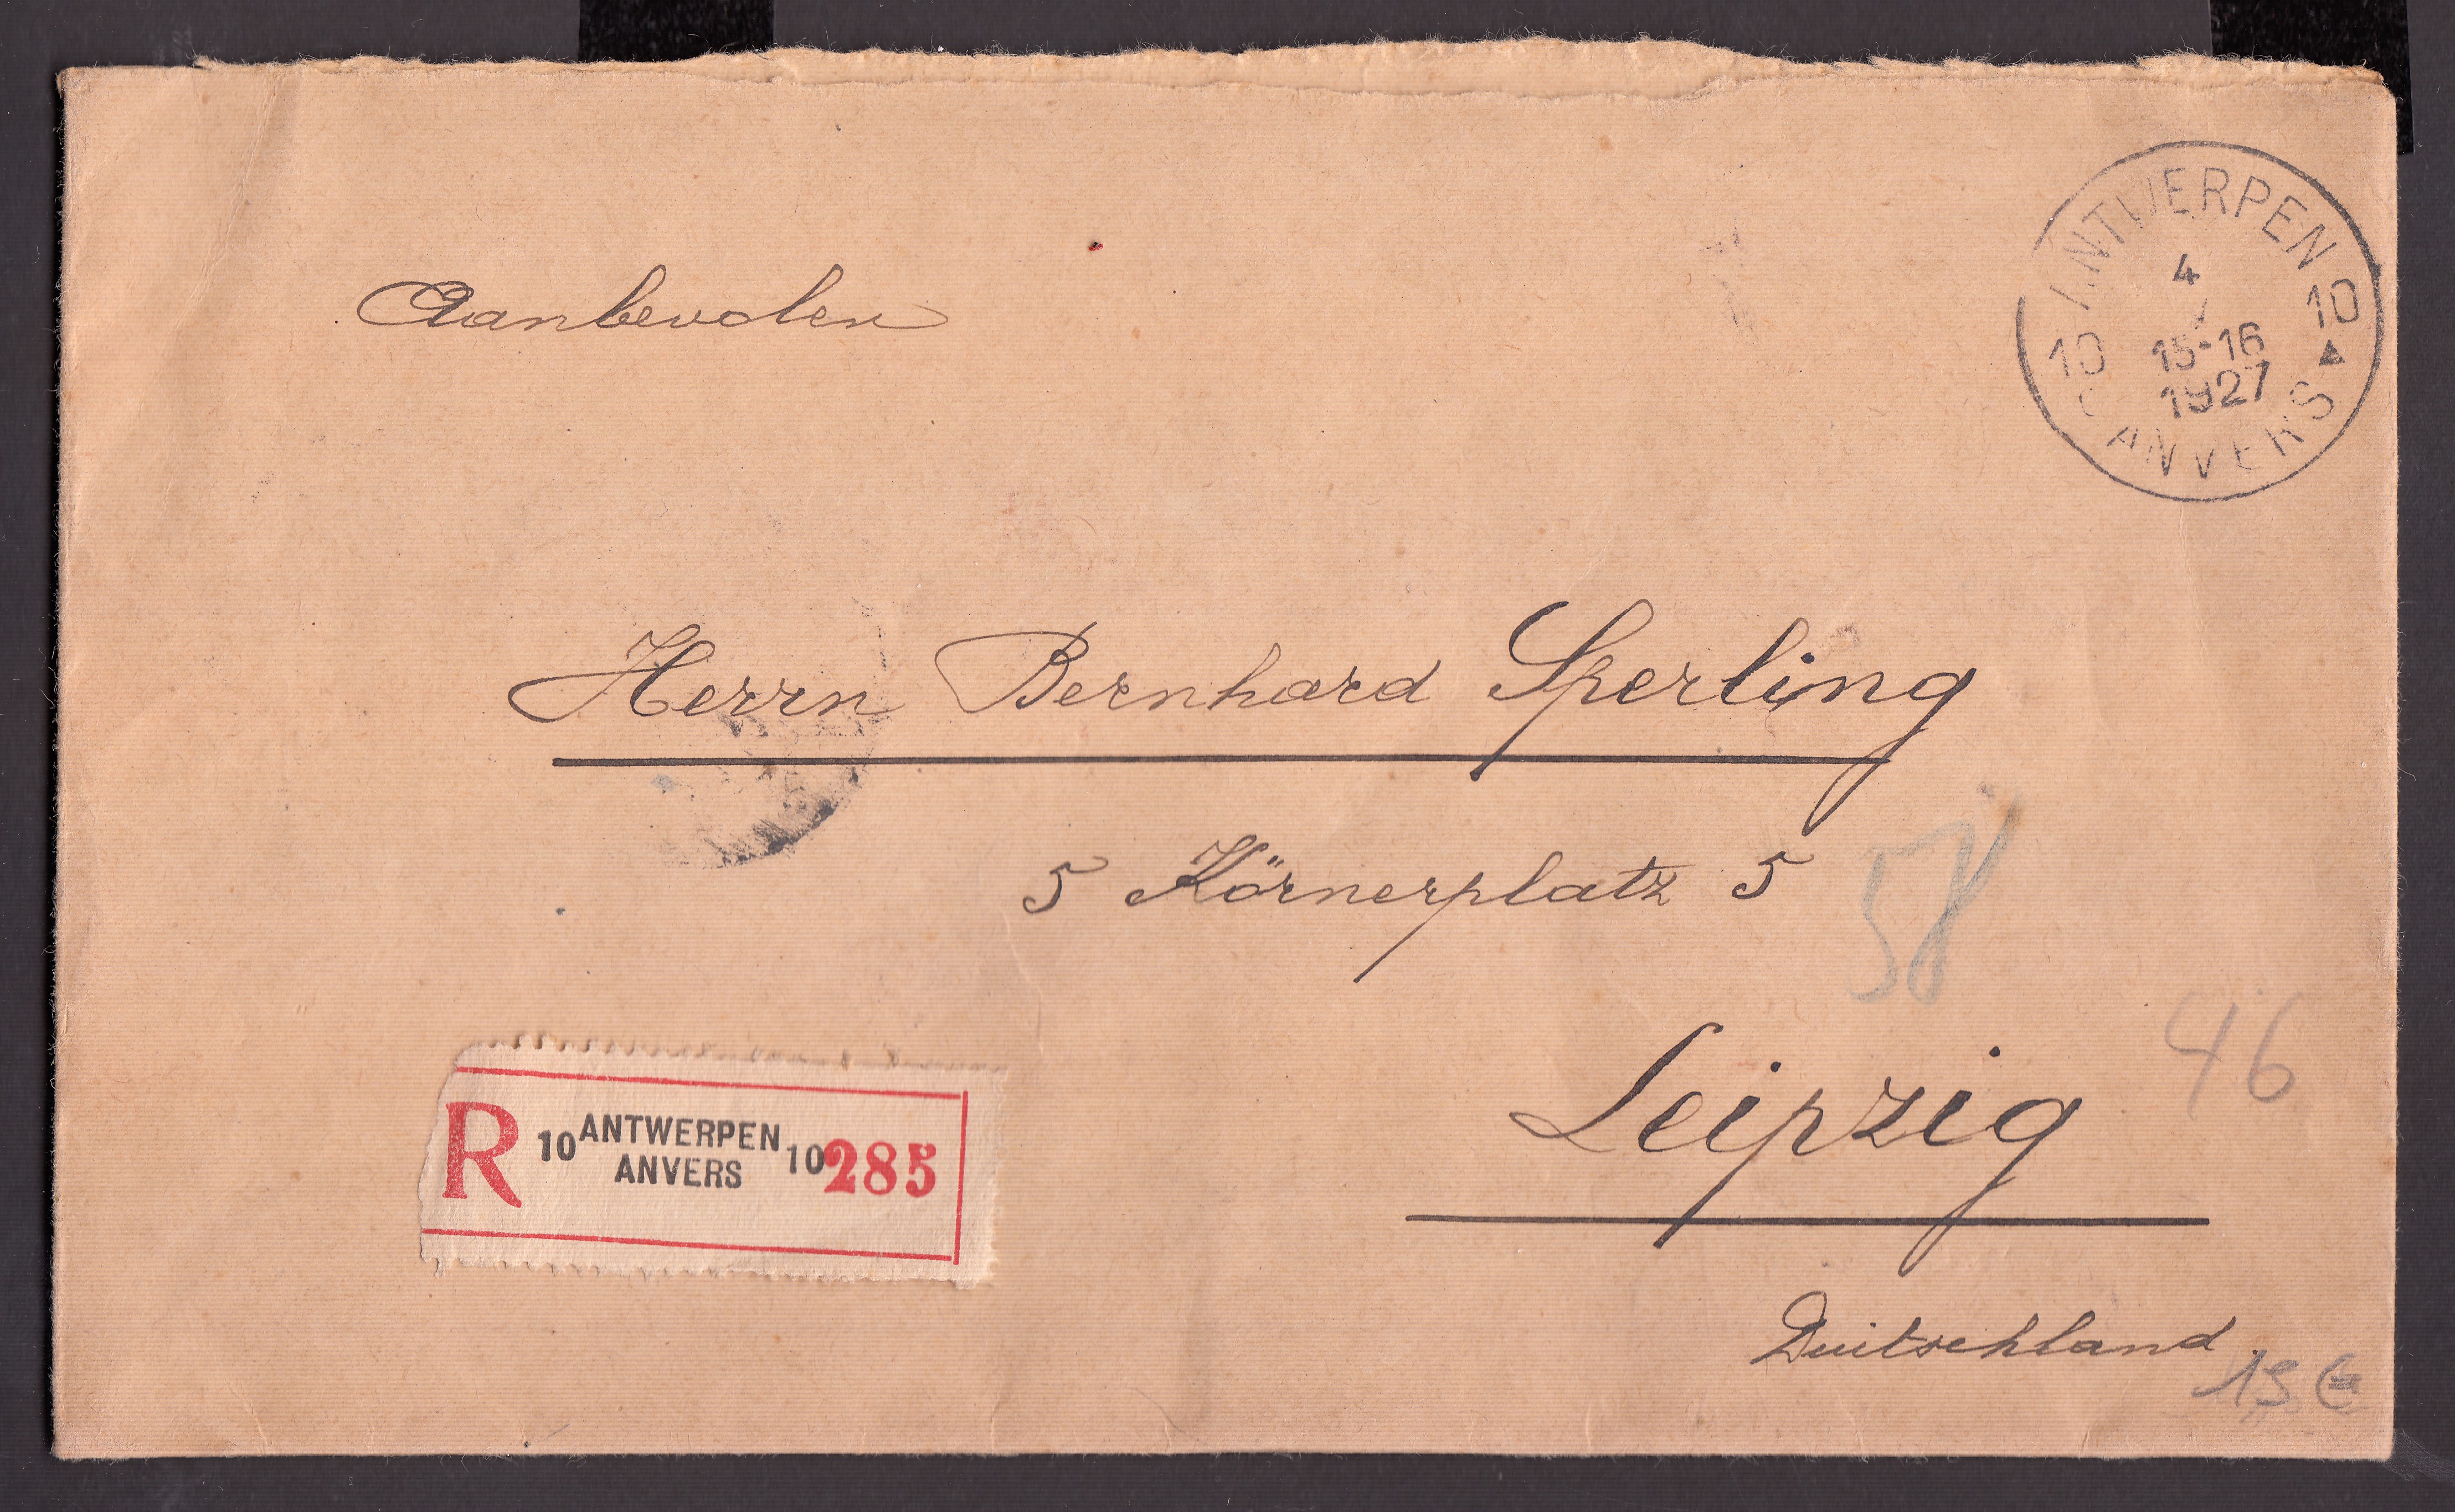 Aanbevolen
ANTWERPEN
4
10 10
15-16
1927
ANVERS
Herrn Bernhard Sperling
5 Körnerplatz 5
58
46
Leipzig
R 10 ANTWERPEN 10 285
ANVERS
Duitschland